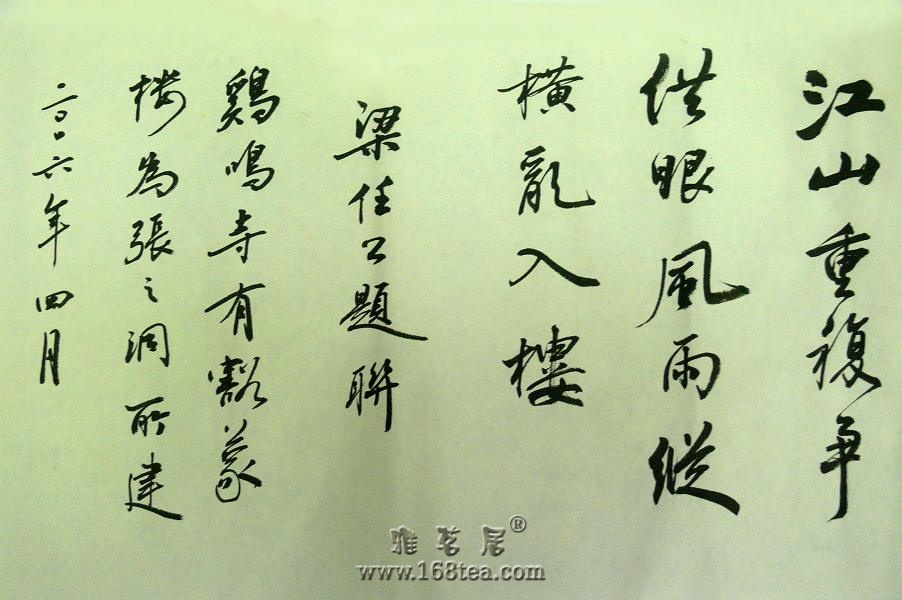 江山重複爭
供眼風雨縱
橫亂入樓
梁任公題聯
鷄鳴寺有豁蒙
楼為張之洞所建
二〇〇六年四月
雅茗居®
www.168tea.com